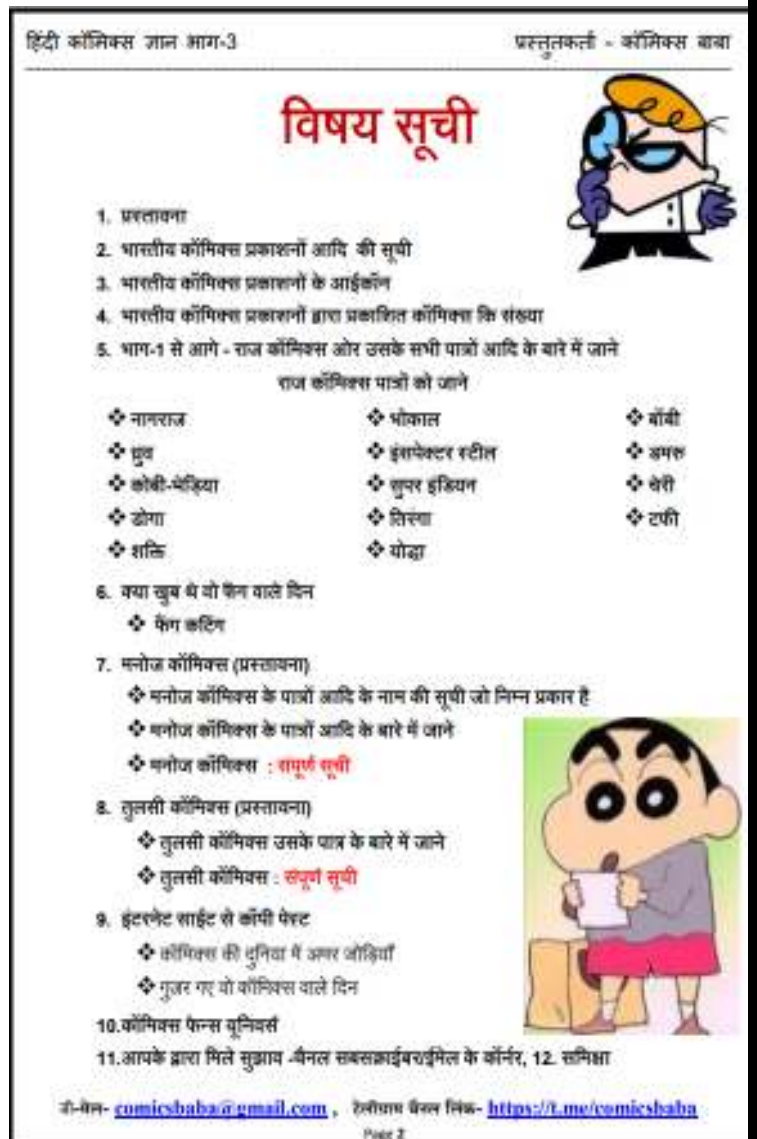 हिंदी कॉमिक्स ज्ञान भाग-3 प्रस्तुतकर्ता - कॉमिक्स बाबा
विषय सूची
1. प्रस्तावना
2. भारतीय कॉमिक्स प्रकाशनों आदि की सूची
3. भारतीय कॉमिक्स प्रकाशनों के आईकॉन
4. भारतीय कॉमिक्स प्रकाशनों द्वारा प्रकाशित कॉमिक्स कि संख्या
5. भाग-1 से आगे - राज कॉमिक्स ओर उसके सभी पात्रों आदि के बारे में जाने
राज कॉमिक्स पात्रों को जाने
❖ नागराज ❖ भोकाल ❖ बॉबी
❖ ध्रुव ❖ इंसपेक्टर स्टील ❖ डमरु
❖ कोबी-भेड़िया ❖ सुपर इंडियन ❖ चेरी
❖ डोगा ❖ तिरंगा ❖ टफी
❖ शक्ति ❖ योद्धा
6. क्या खुब थे वो फैंग वाले दिन
❖ फैंग कटिंग
7. मनोज कॉमिक्स (प्रस्तावना)
❖ मनोज कॉमिक्स के पात्रों आदि के नाम की सूची जो निम्न प्रकार है
❖ मनोज कॉमिक्स के पात्रों आदि के बारे में जाने
❖ मनोज कॉमिक्स : संपूर्ण सूची
8. तुलसी कॉमिक्स (प्रस्तावना)
❖ तुलसी कॉमिक्स उसके पात्र के बारे में जाने
❖ तुलसी कॉमिक्स : संपूर्ण सूची
9. इंटरनेट साईट से कॉपी पेस्ट
❖ कॉमिक्स की दुनिया में अमर जोड़ियाँ
❖ गुजर गए वो कॉमिक्स वाले दिन
10.कॉमिक्स फेन्स यूनिवर्स
11.आपके द्वारा मिले सुझाव -चैनल सबसक्राईबर/ईमेल के कॉर्नर, 12. समिक्षा
ई-मेल- comicsbaba@gmail.com , टेलीग्राम चैनल लिंक- https://t.me/comicsbaba
Page 2